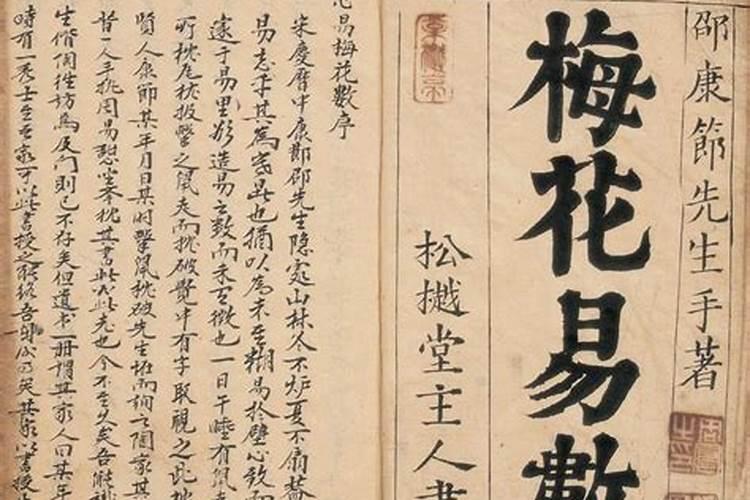 邵康節先生手著
梅花易數
松堂主人書
心易梅花數序
宋慶曆中康節邵先生隱處山林冬不炉夏不扇蓋
易志乎其為寒暑也猶以為未至糊易於壁心致而
遂于易里欲造易之數而未有徵也一日午睡有鼠走
所枕瓦枕投擊之鼠走而枕破覺中有字取視之此枕
賢人康節某年月日某时擊鼠枕破先生怪而詢之陶家其
昔一人手执周易憩坐举枕其書此必此老也今不至久矣吾能識
生偕陶往訪焉及門則已不存矣但遺书一冊謂其家人曰某年
時有一秀士至吾家可以此書授之能終吾身矣其家以書授